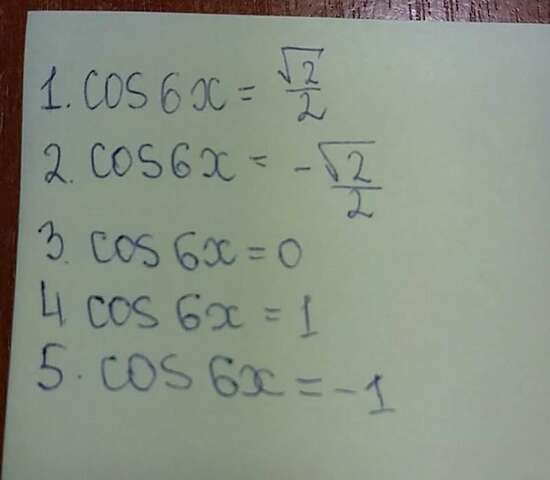 1. cos 6x = √2/2
2. cos 6x = -√2/2
3. cos 6x = 0
4 cos 6x = 1
5. cos 6x = -1